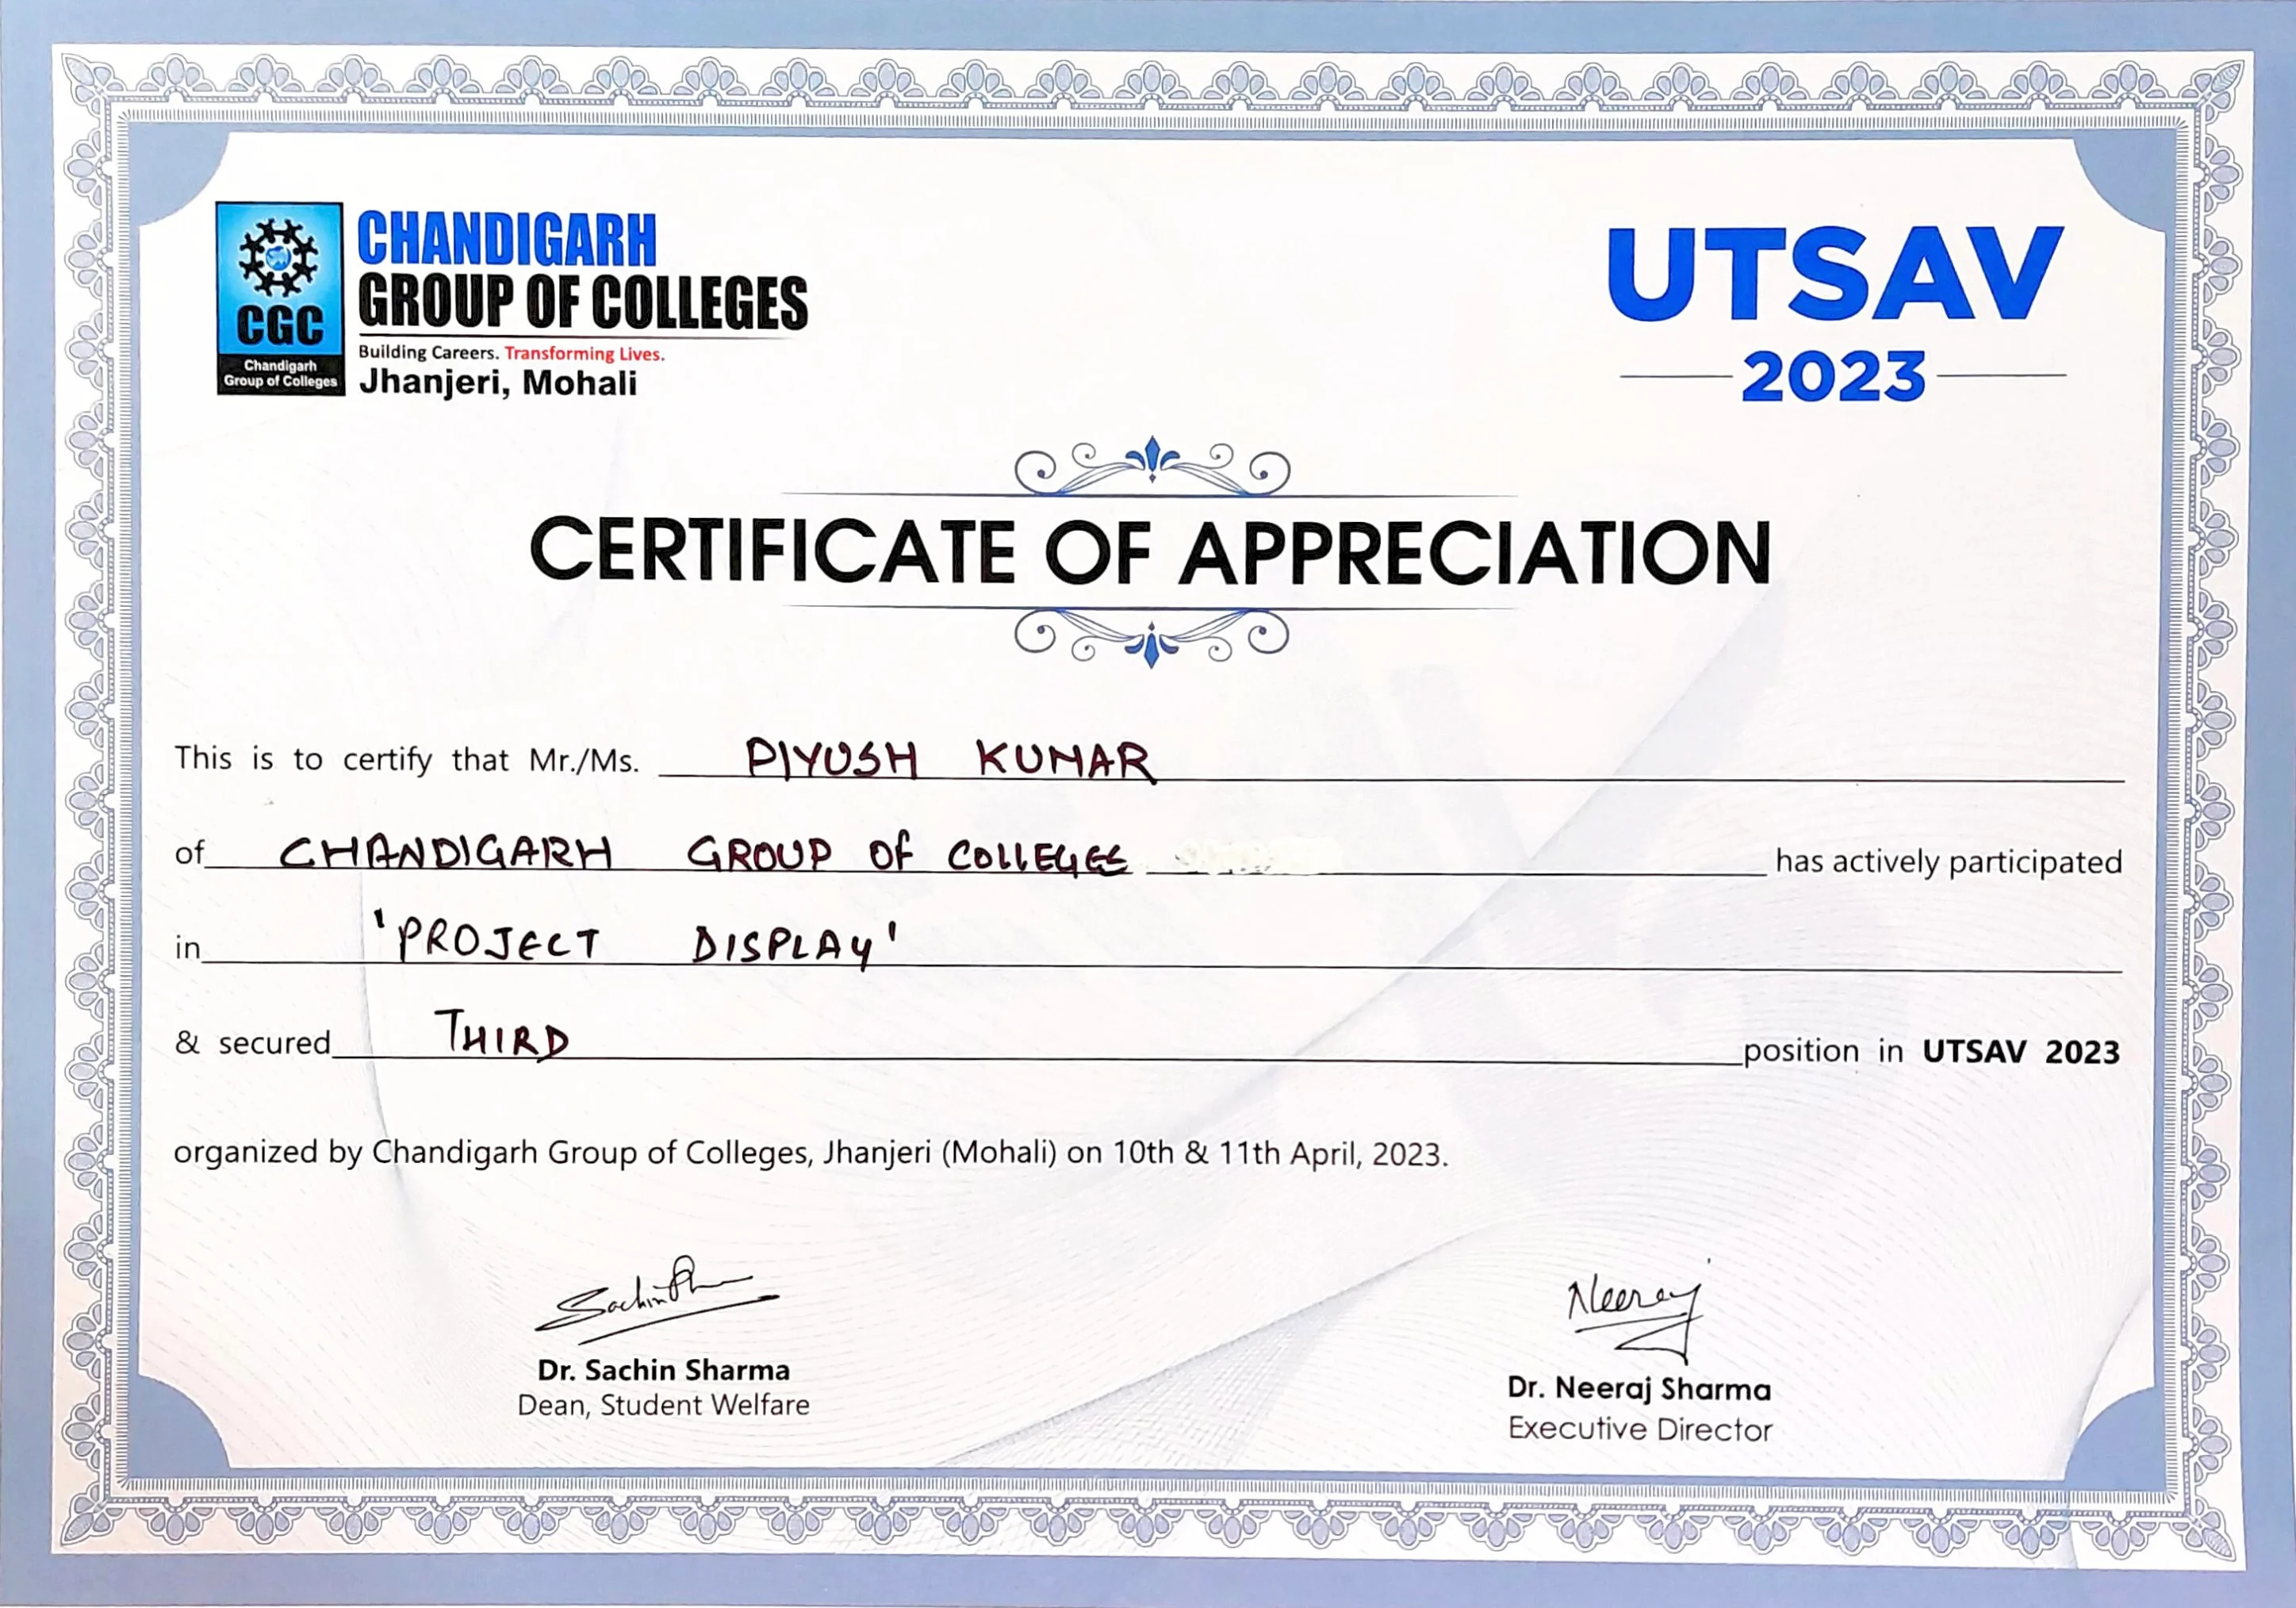 CGC
Chandigarh
Group of Colleges
CHANDIGARH
GROUP OF COLLEGES
Building Careers. Transforming Lives.
Jhanjeri, Mohali
UTSAV
2023
CERTIFICATE OF APPRECIATION
This is to certify that Mr./Ms. PIYUSH KUMAR
of CHANDIGARH GROUP OF COLLEGES has actively participated
in 'PROJECT DISPLAY'
& secured THIRD position in UTSAV 2023
organized by Chandigarh Group of Colleges, Jhanjeri (Mohali) on 10th & 11th April, 2023.
Sachin
Dr. Sachin Sharma
Dean, Student Welfare
Neeraj
Dr. Neeraj Sharma
Executive Director